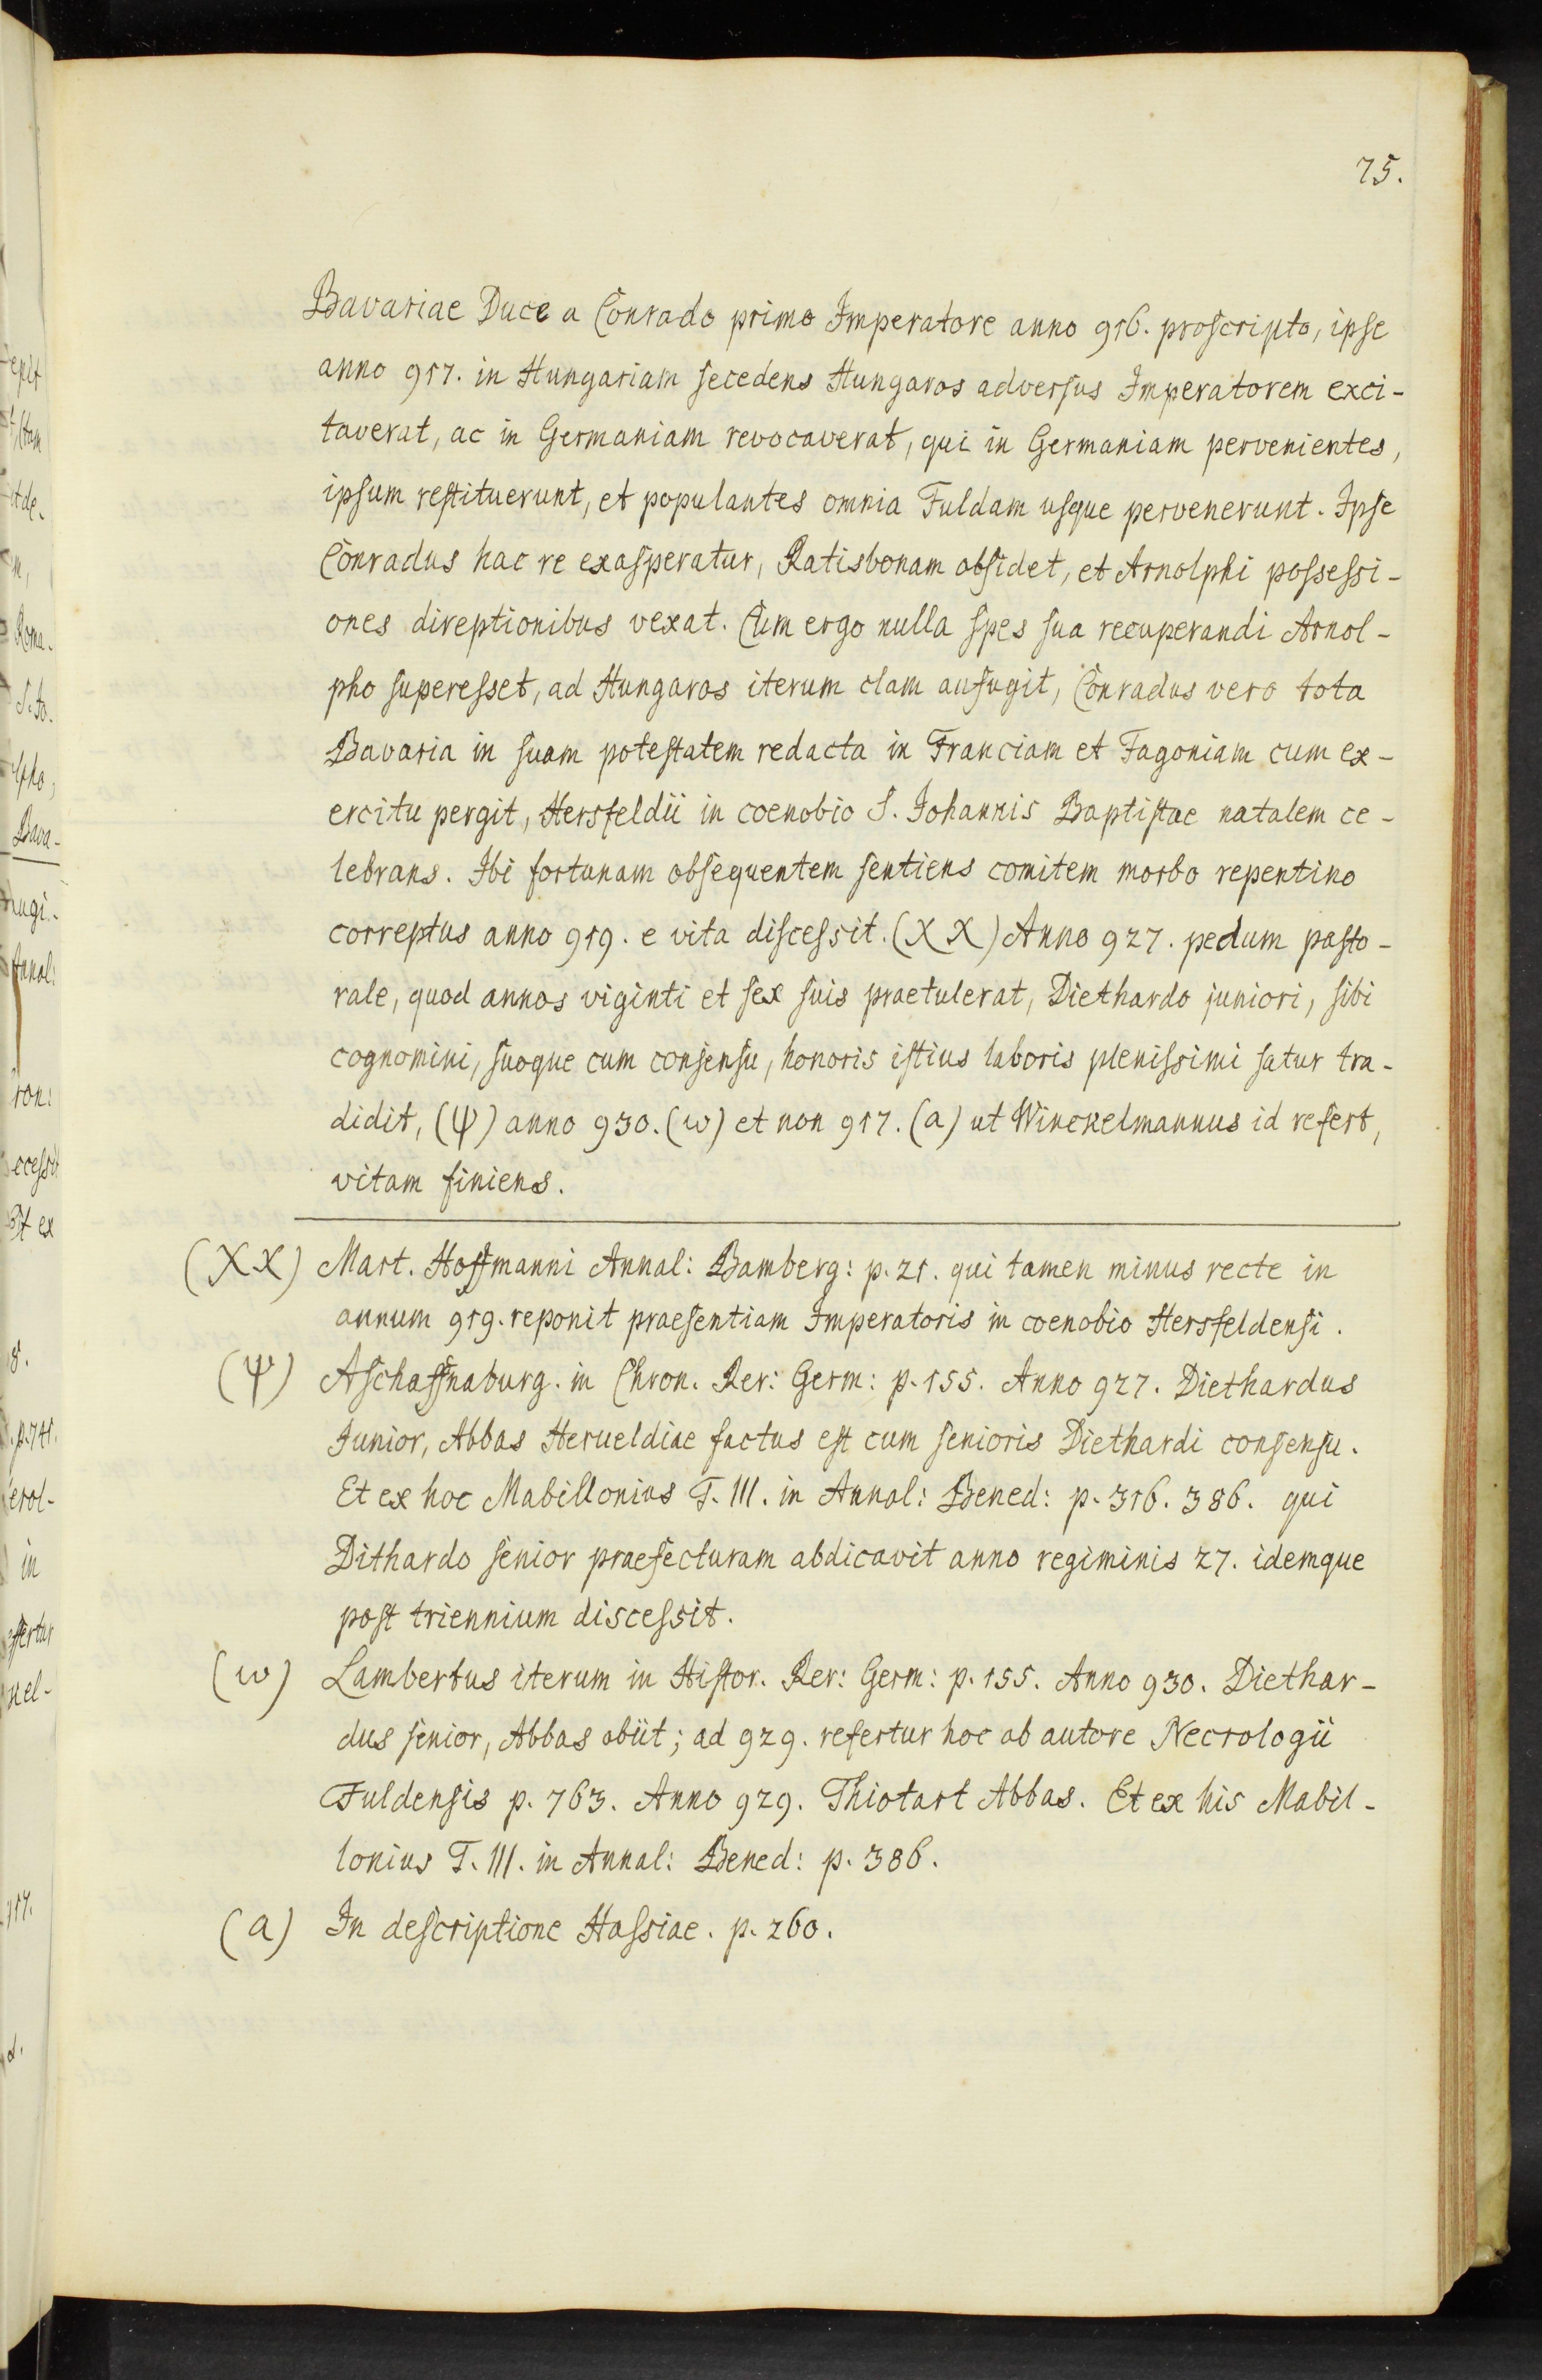 75.
Bavariae Duce a Conrado primo Imperatore anno 916. proscripto, ipse
anno 917. in Hungariam secedens Hungaros adversus Imperatorem exci-
taverat, ac in Germaniam revocaverat, qui in Germaniam pervenientes,
ipsum restituerunt, et populantes omnia Fuldam usque pervenerunt. Ipse
Conradus hac re exasperatur, Ratisbonam obsidet, et Arnolphi possessi-
ones direptionibus vexat. Cum ergo nulla spes sua recuperandi Arnol-
pho superesset, ad Hungaros iterum clam aufugit, Conradus vero tota
Bavaria in suam potestatem redacta in Franciam et Fagoniam cum ex-
ercitu pergit, Hersfeldii in coenobio S. Johannis Baptistae natalem ce-
lebrans. Ibi fortunam obsequentem sentiens comitem morbo repentino
correptus anno 919. e vita discessit. (XX) Anno 927. pedum pasto-
rale, quod annos viginti et sex suis praetulerat, Diethardo juniori, sibi
cognomini, suoque cum consensu, honoris istius laboris plenissimi satur tra-
didit, (ψ) anno 930. (ω) et non 917. (a) ut Winckelmannus id refert,
vitam finiens.
(XX) Mart. Hoffmanni Annal: Bamberg: p. 21. qui tamen minus recte in
annum 919. reponit praesentiam Imperatoris in coenobio Hersfeldensi.
(ψ) Aschaffnaburg. in Chron. Rer: Germ: p. 155. Anno 927. Diethardus
Junior, Abbas Herueldiae factus est cum senioris Diethardi consensu.
Et ex hoc Mabillonius T. III. in Annal: Bened: p. 316. 386. qui
Dithardo senior praefecturam abdicavit anno regiminis 27. idemque
post triennium discessit.
(ω) Lambertus iterum in Histor. Rer: Germ: p. 155. Anno 930. Diethar-
dus senior, Abbas obiit; ad 929. refertur hoc ab autore Necrologii
Fuldensis p. 763. Anno 929. Thiotart Abbas. Et ex his Mabil-
lonius T. III. in Annal: Bened: p. 386.
(a) In descriptione Hassiae. p. 260.